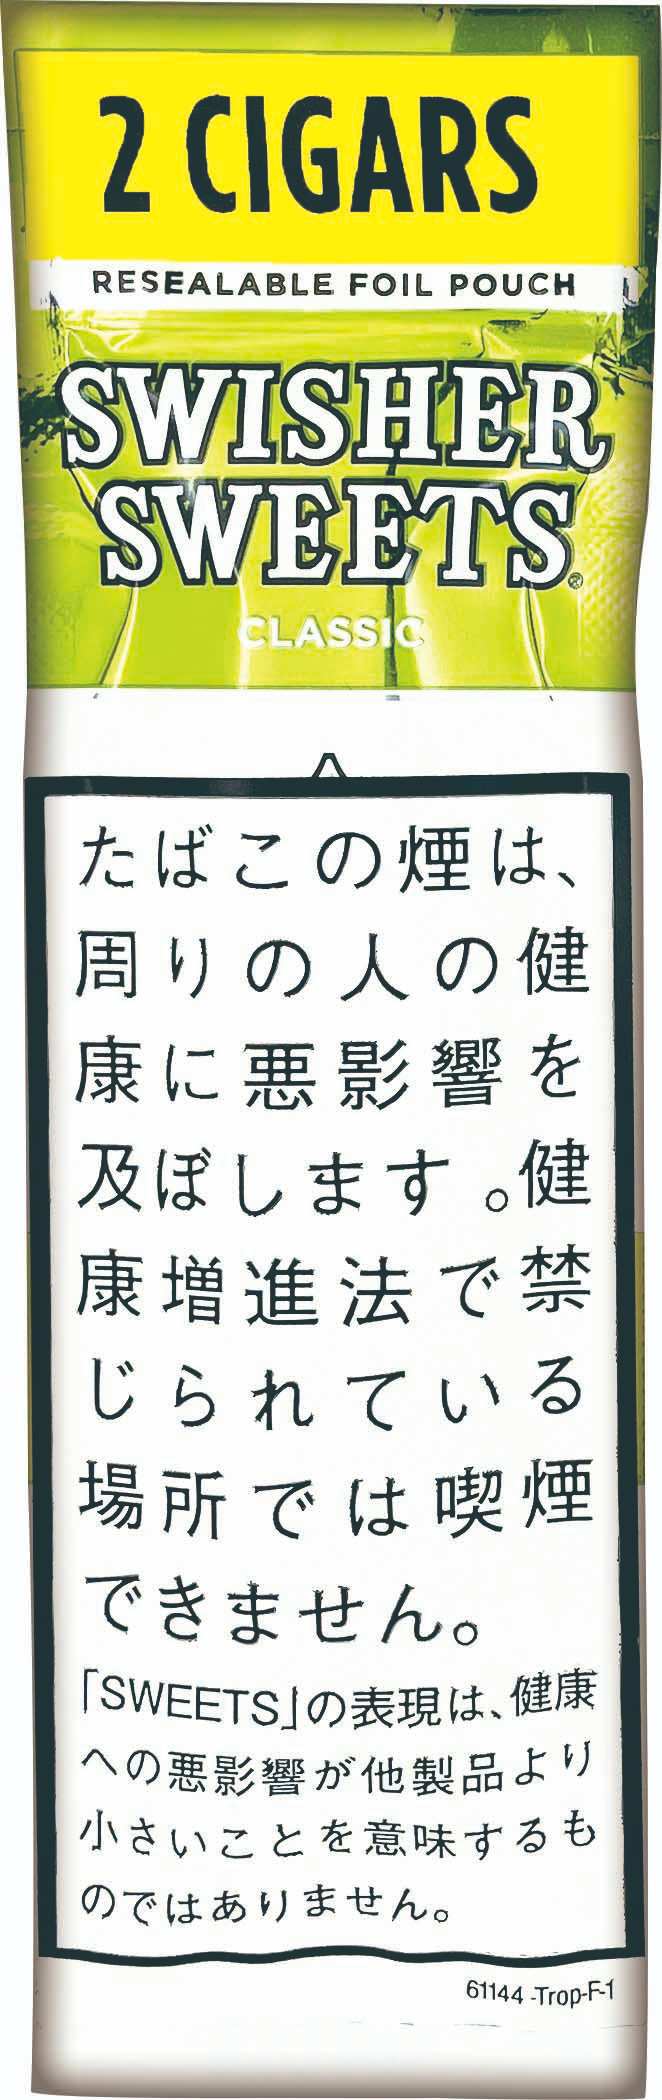 2 CIGARS
RESEALABLE FOIL POUCH
SWISHER
SWEETS®
CLASSIC
たばこの煙は、
周りの人の健
康に悪影響を
及ぼします。健
康増進法で禁
じられている
場所では喫煙
できません。
「SWEETS」の表現は、健康
への悪影響が他製品より
小さいことを意味するも
のではありません。
61144 -Trop-F-1